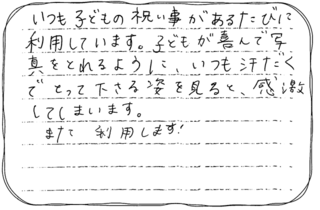 いつも子どもの祝い事があるたびに
利用しています。子どもが喜んで写
真をとれるように、いつも汗だく
でとって下さる姿を見ると、感激
してしまいます。
また 利用します!